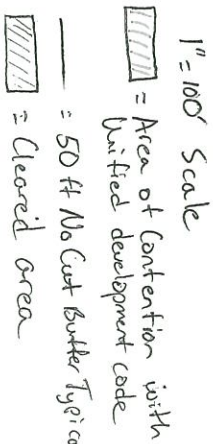 1"=100' Scale
= Area of Contention with
Unified development code
= 50 ft No Cut Buffer Typica
= Cleared area